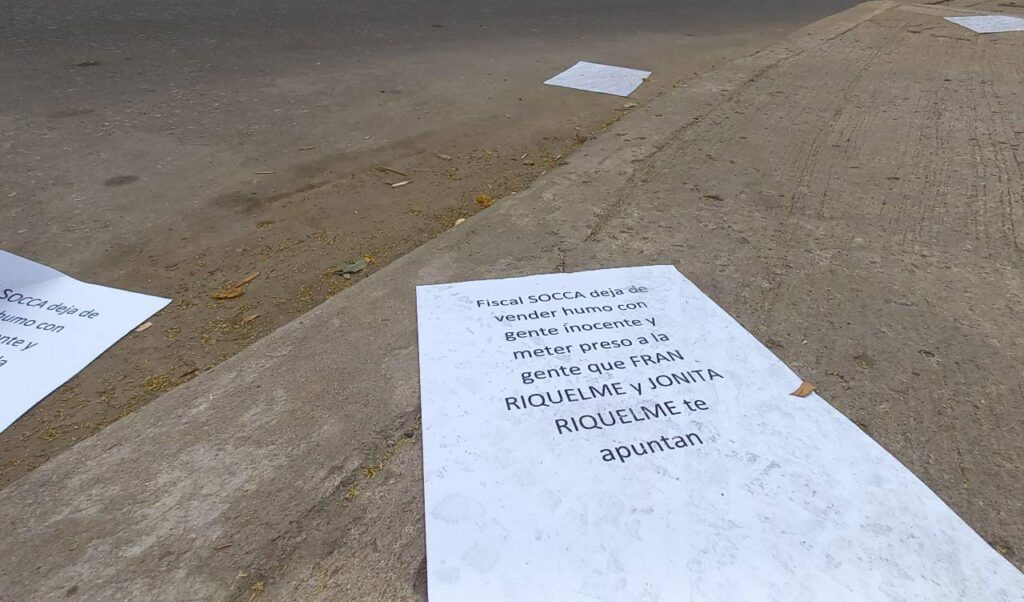 Fiscal SOCCA deja de
vender humo con
gente ínocente y
meter preso a la
gente que FRAN
RIQUELME y JONITA
RIQUELME te
apuntan
SOCCA deja de
humo con